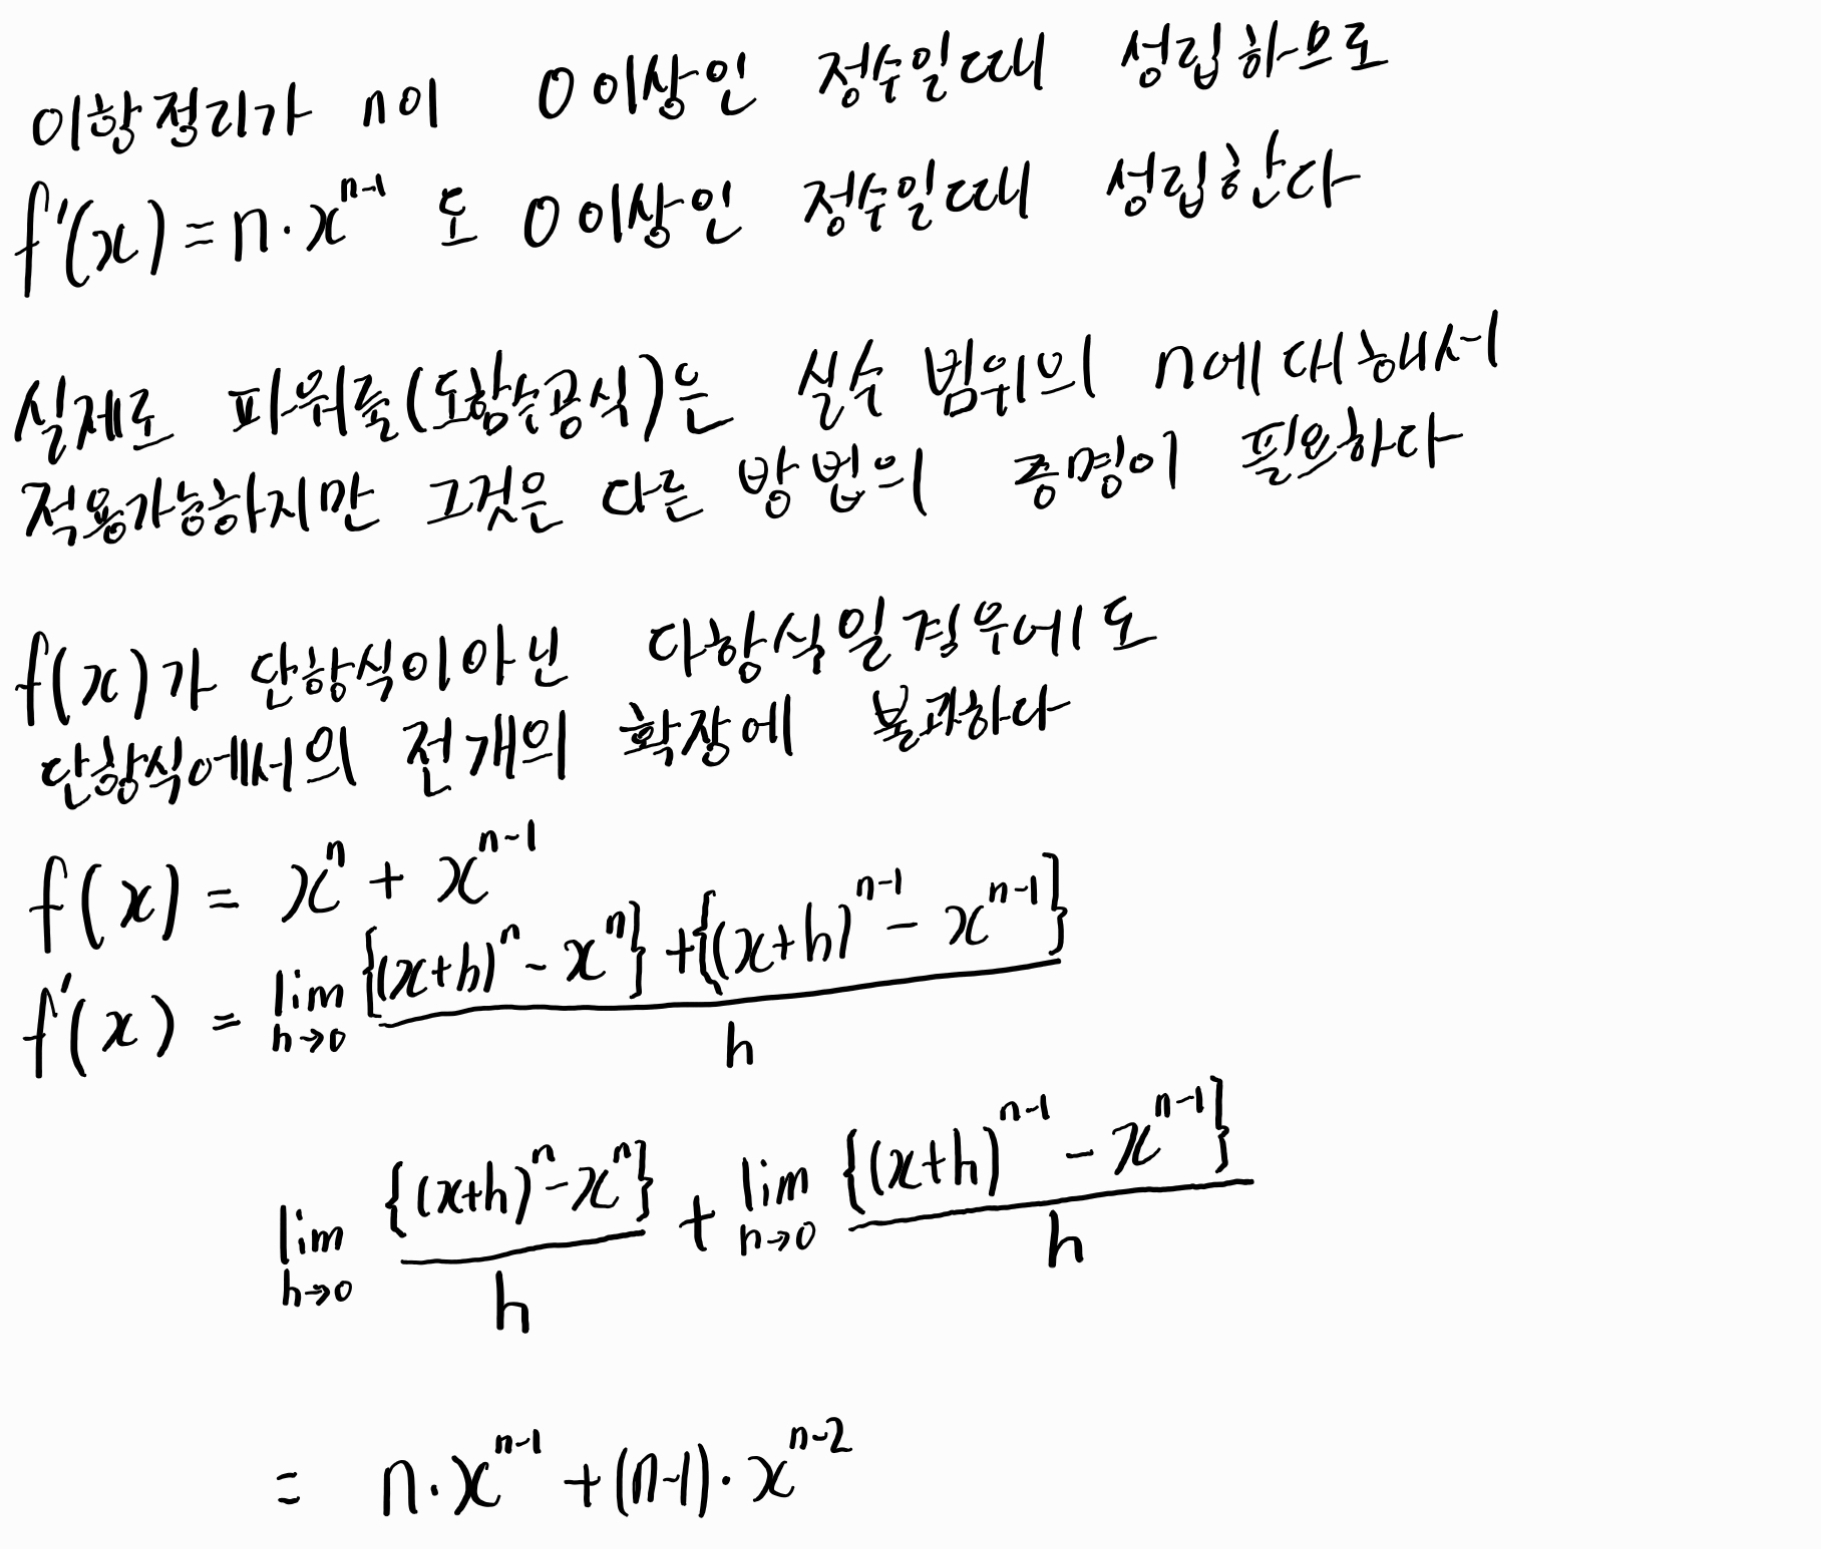 이항정리가 n이 0이상인 정수일때 성립하므로
f'(x) = n·x^{n-1} 도 0이상인 정수일때 성립한다
실제로 파워룰(도함수공식)은 실수 범위의 n에 대해서
적용가능하지만 그것은 다른 방법의 증명이 필요하다
f(x)가 단항식이아닌 다항식일경우에도
단항식에서의 전개의 확장에 불과하다
f(x) = x^n + x^{n-1}
f'(x) = lim_{h→0} \frac{{(x+h)^n - x^n} + {(x+h)^{n-1} - x^{n-1}}}{h}
lim_{h→0} \frac{{(x+h)^n - x^n}}{h} + lim_{h→0} \frac{{(x+h)^{n-1} - x^{n-1}}}{h}
= n·x^{n-1} + (n-1)·x^{n-2}